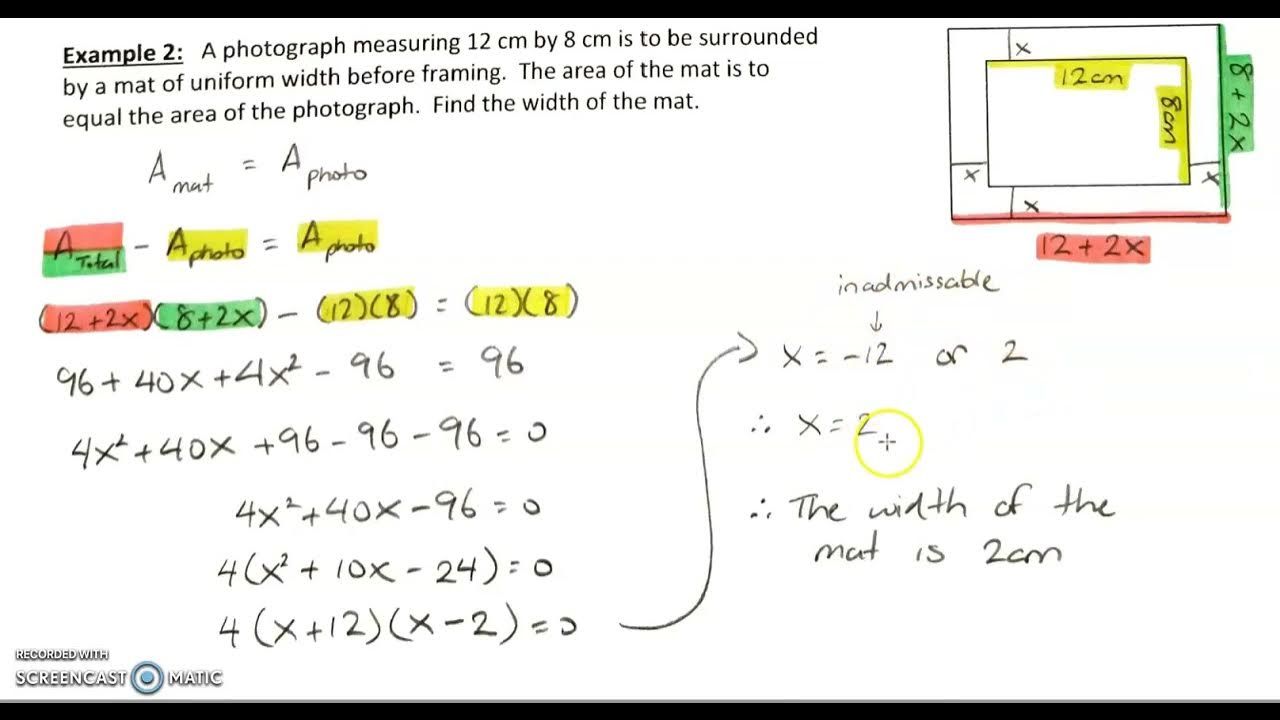 Example 2: A photograph measuring 12 cm by 8 cm is to be surrounded
by a mat of uniform width before framing. The area of the mat is to
equal the area of the photograph. Find the width of the mat.
A mat = A photo
A Total - A photo = A photo
(12+2x)(8+2x) - (12)(8) = (12)(8)
96 + 40x + 4x² - 96 = 96
4x² + 40x + 96 - 96 - 96 = 0
4x² + 40x - 96 = 0
4(x² + 10x - 24) = 0
4(x+12)(x-2) = 0
x
12cm
8cm
8 + 2x
x
x
x
12 + 2x
inadmissable
↓
x = -12 or 2
∴ x = 2
∴ The width of the
mat is 2cm
RECORDED WITH
SCREENCAST MATIC